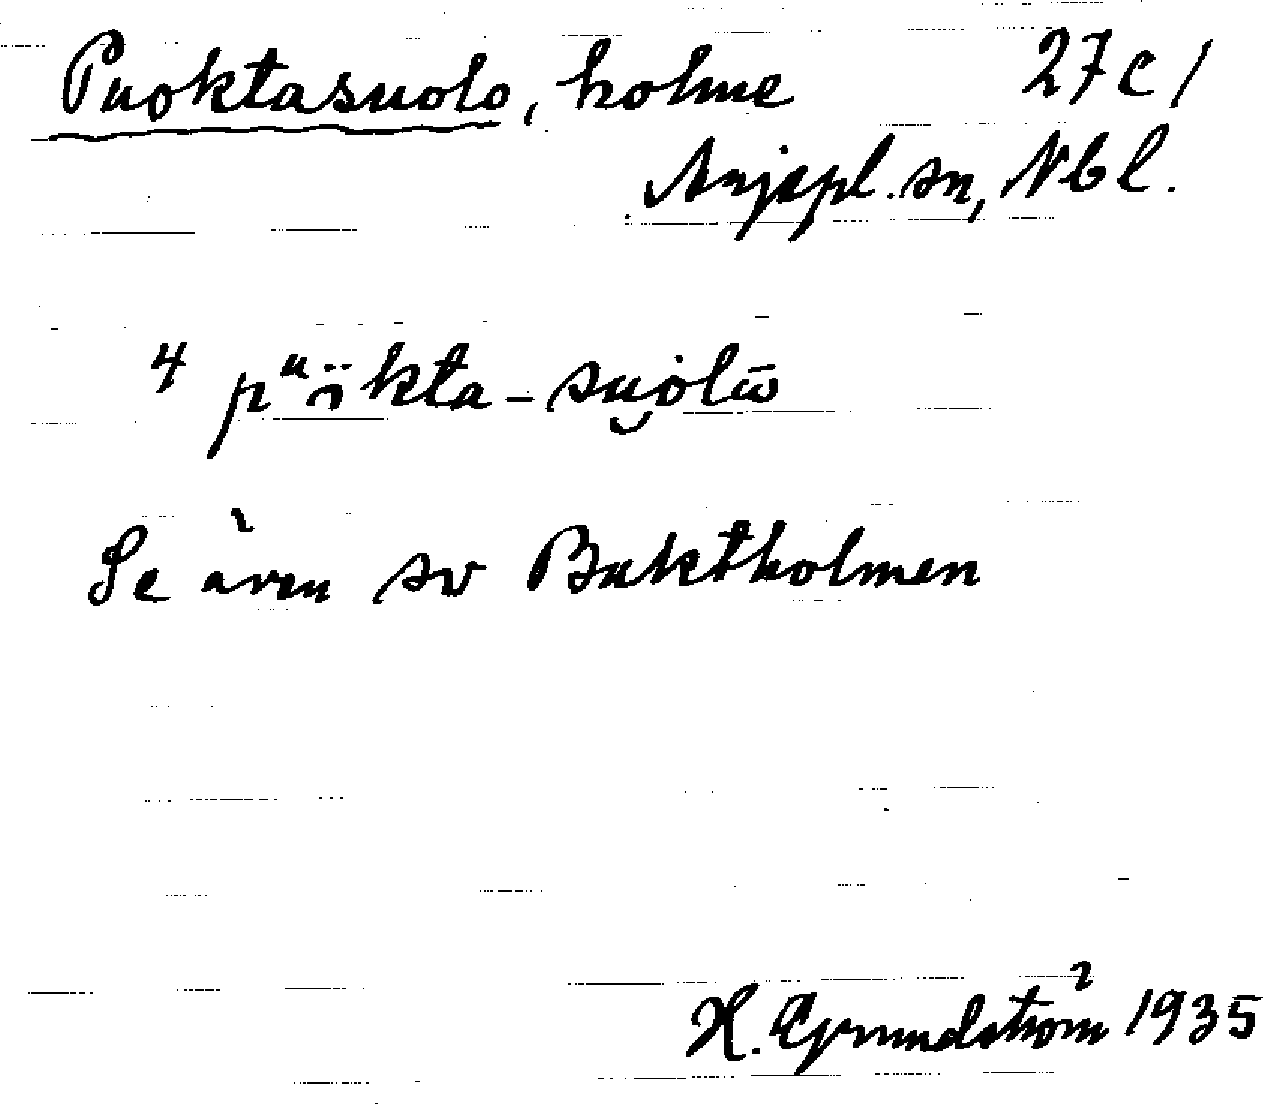 Puoktasuolo, holme 27 c /
Arjepl. sn, Nbl.
Se även sv Buktholmen
H. Grundström 1935